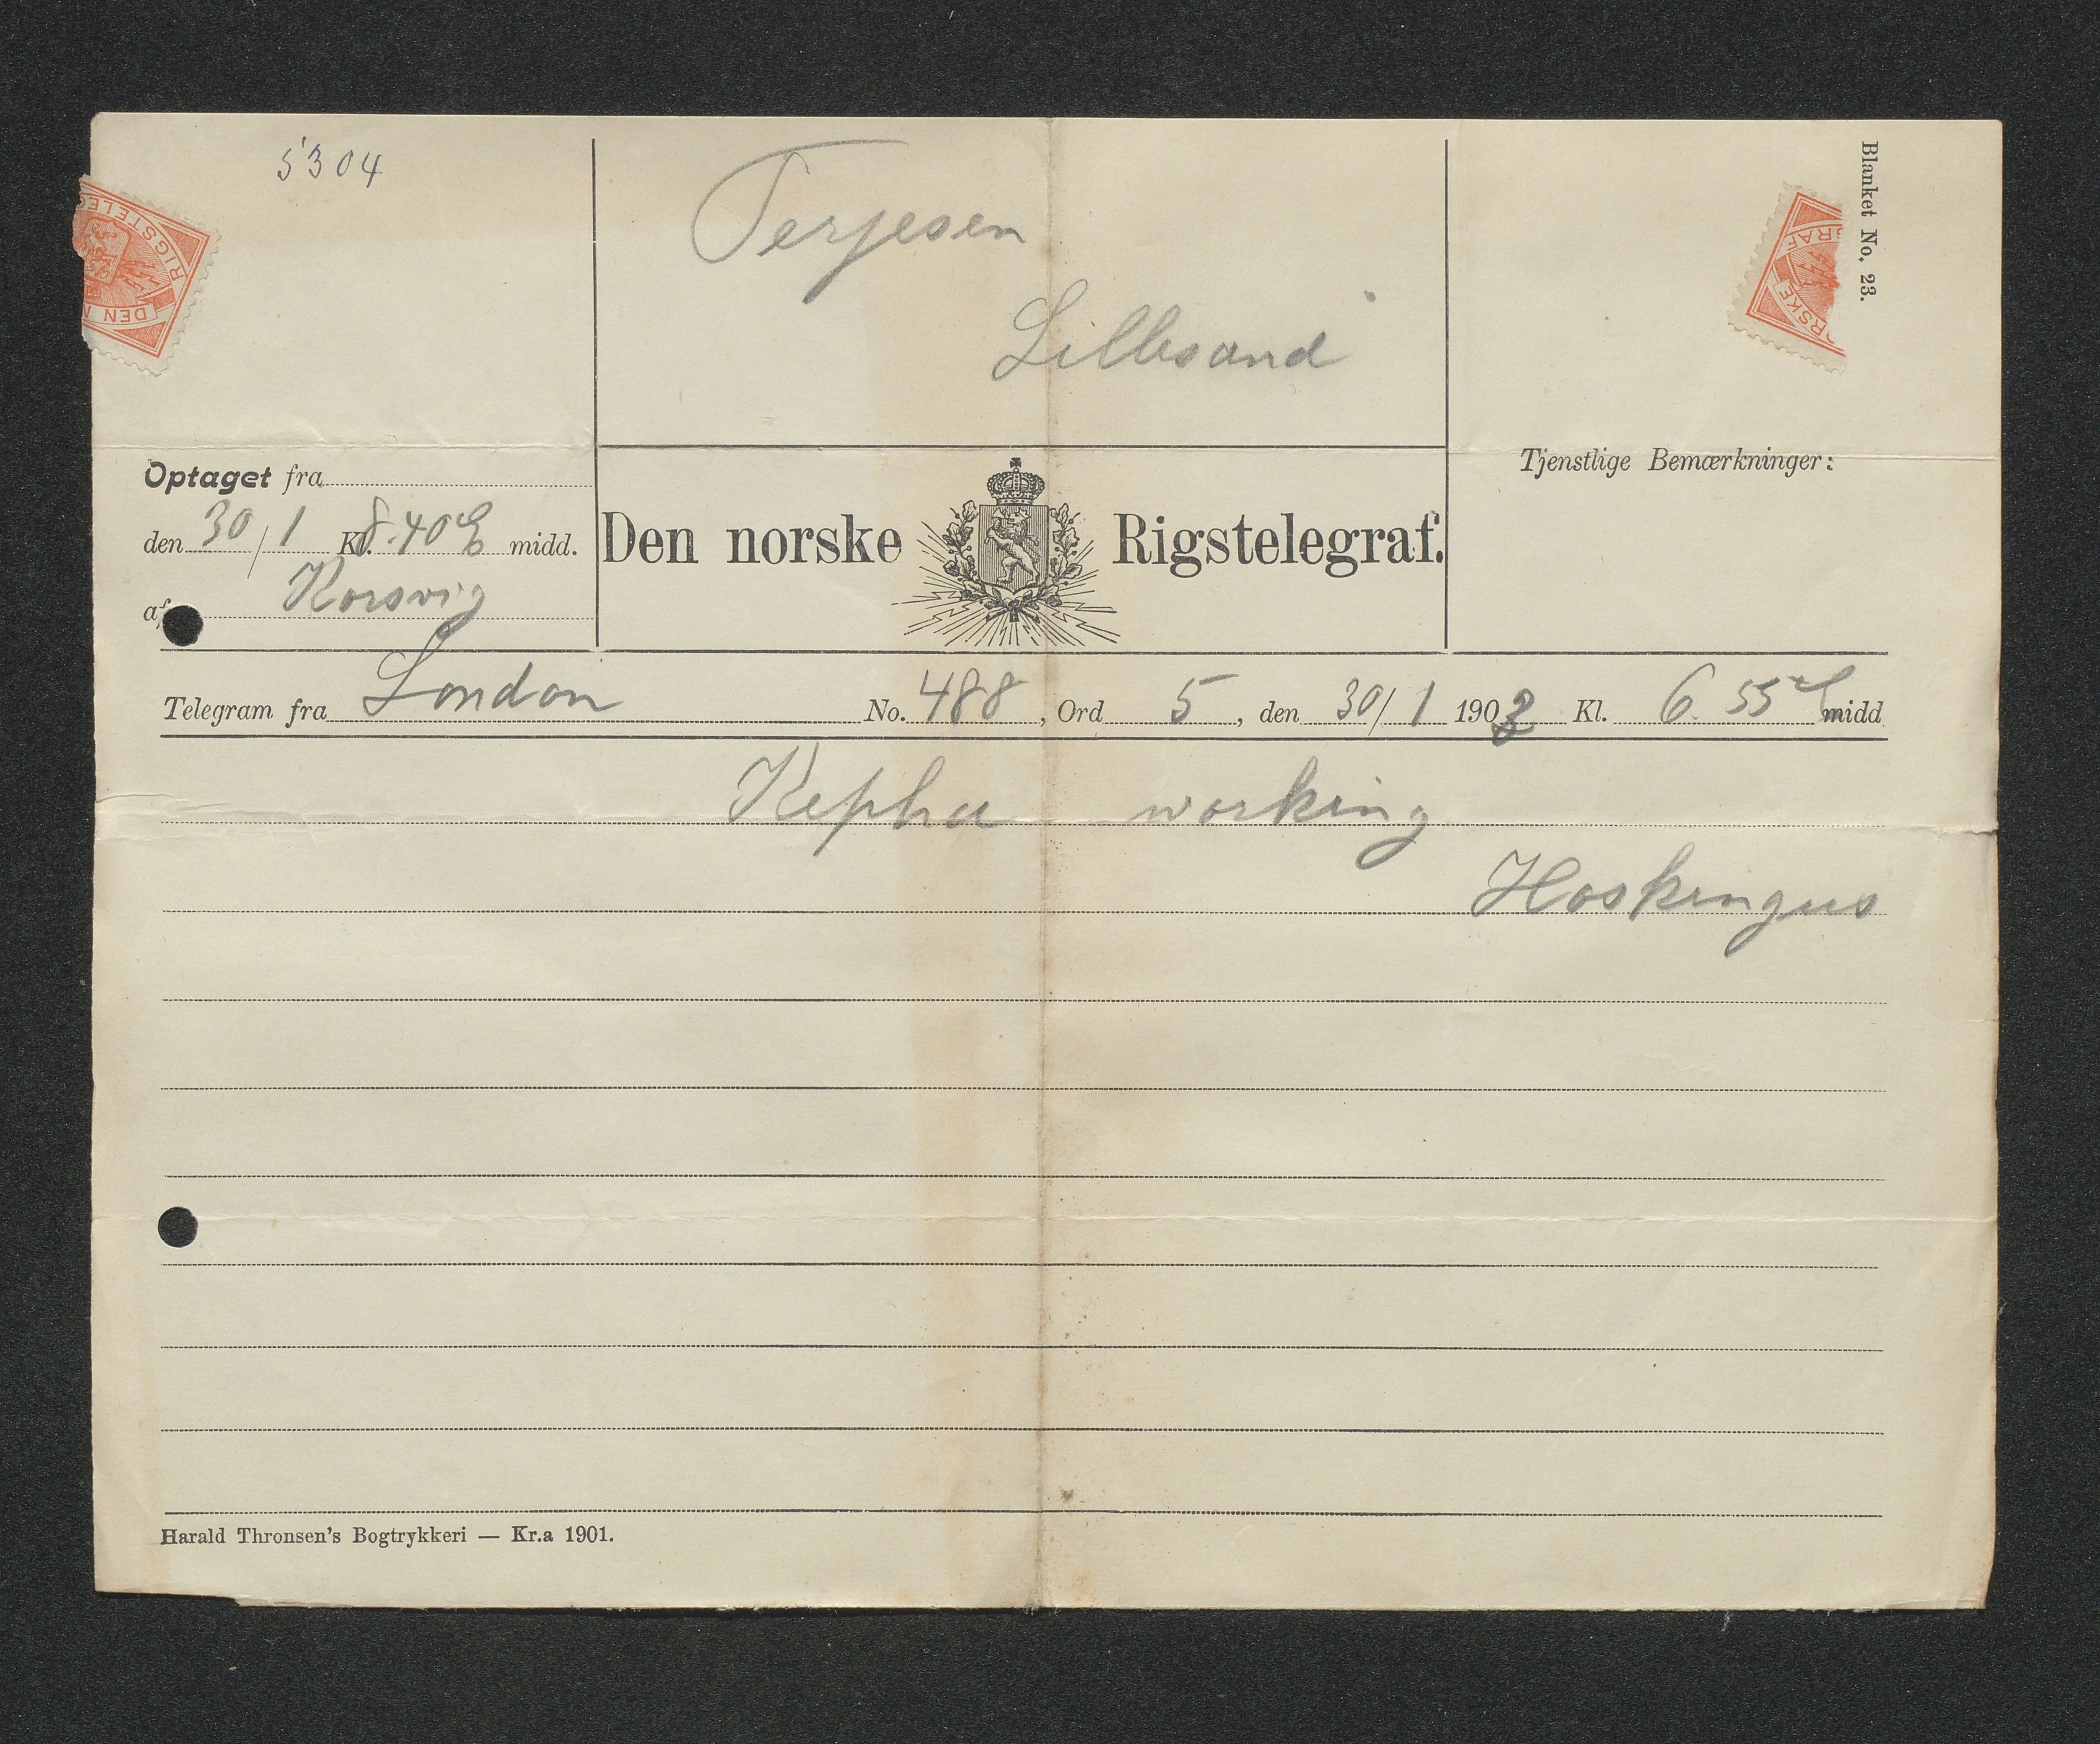 5304
Terjesen
Lillesand
Blanket No. 23.
RIGSTELEG
DEN N
GRAF
RSKE
Optaget fra
den 30/1 Kl. 8.40 E midd.
af Korsvig
Den norske Rigstelegraf.
Tjenstlige Bemærkninger:
Telegram fra London No. 488, Ord 5, den 30/1 1902 Kl. 6.55 E midd
Kepha working
Hoskingus
Harald Thronsen's Bogtrykkeri — Kr.a 1901.